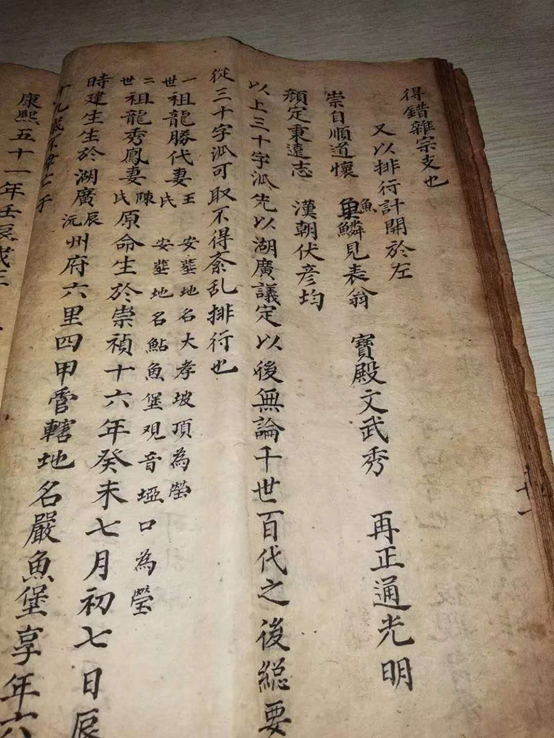 得錯雜宗支也
又以排行計開於左
崇自順道懷　魚鱗見表翁　寶殿文武秀　再正通光明
顏定秉遠志　漢朝伏彥均
以上三十字派先以湖廣議定以後無論千世百代之後総要
從三十字派可取不得紊乱排行也
一世祖龍勝代妻王氏　安塟地名大孝坡頂為塋
安塟地名鮎魚堡观音埡口為塋
二世祖龍秀鳳妻陳氏原命生於崇禎十六年癸未七月初七日辰
時建生生於湖廣辰沅州府六里四甲管轄地名嚴魚堡享年六
十九歲不
康熙五十一年壬辰歲三